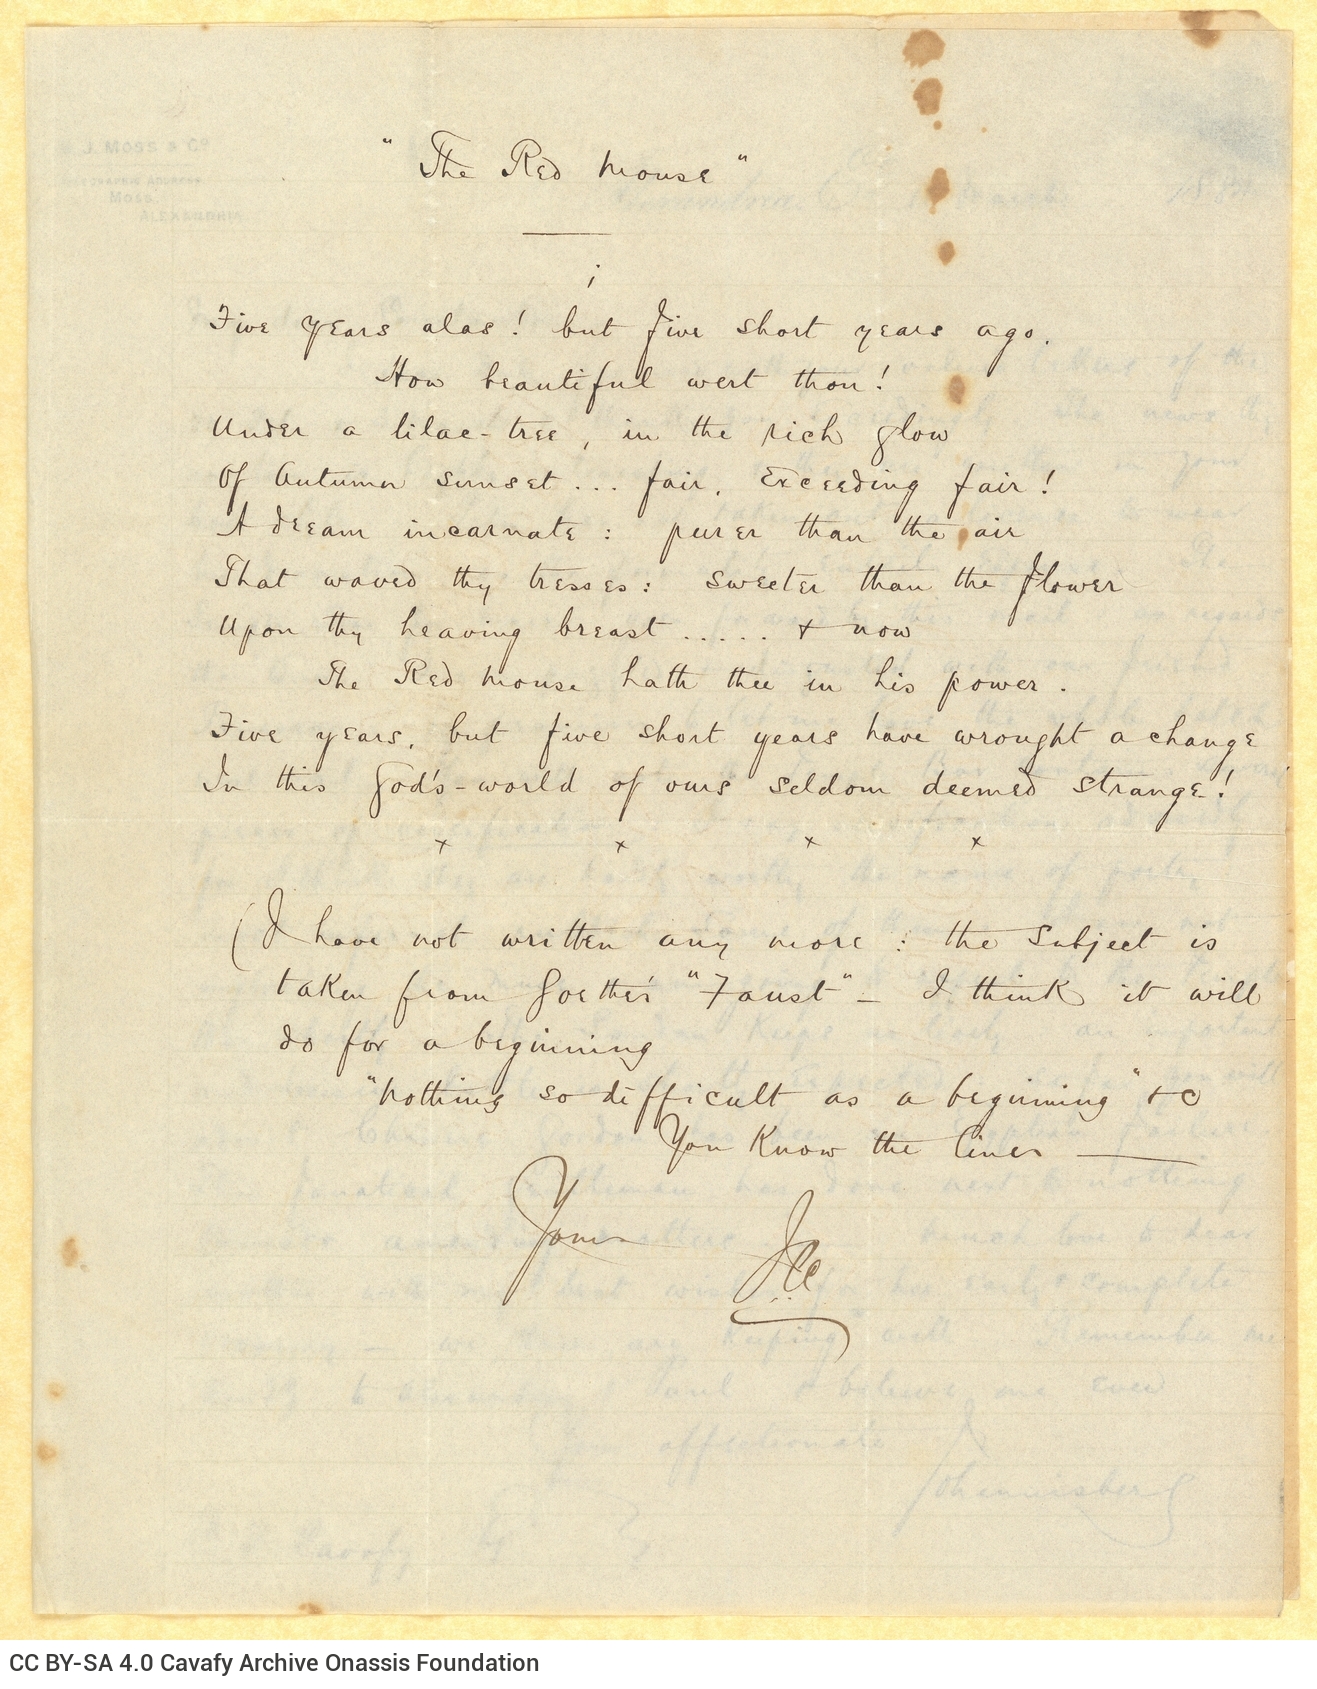 J. MOSS & Co
MOSS
ALEXANDRIA
"The Red Mouse"
1
Five years alas! but five short years ago,
How beautiful wert thou!
Under a lilac-tree, in the rich glow
Of Autumn sunset... fair, exceeding fair!
A dream incarnate: purer than the air
That waved thy tresses: sweeter than the flower
Upon thy heaving breast ..... & now
The Red Mouse hath thee in his power.
Five years, but five short years have wrought a change
In this God's-world of ours seldom deemed strange!
x x x x
(I have not written any more: the subject is
taken from Goethe's "Faust" – I think it will
do for a beginning
"Nothing so difficult as a beginning" &c
You know the lines —
Yours
JCC
CC BY-SA 4.0 Cavafy Archive Onassis Foundation